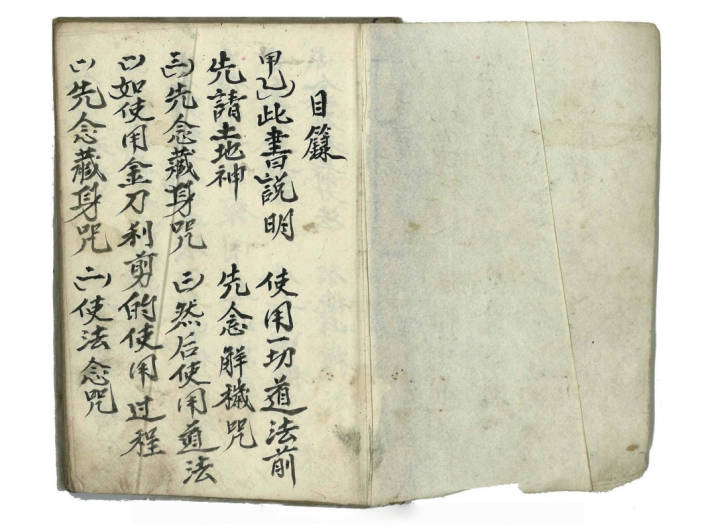 目籙
甲乙)此書説明 使用一切道法前
先請土地神 先念解穢咒
三)先念藏身咒 三)然后使用道法
如使用金刀利剪的使用过程
一)先念藏身咒 二)使法念咒